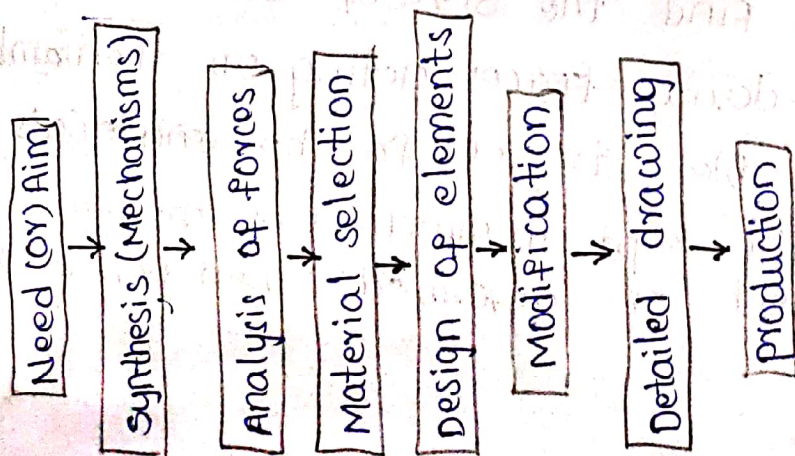 Need (or) Aim
Synthesis (Mechanisms)
Analysis of forces
Material selection
Design of elements
Modification
Detailed drawing
production